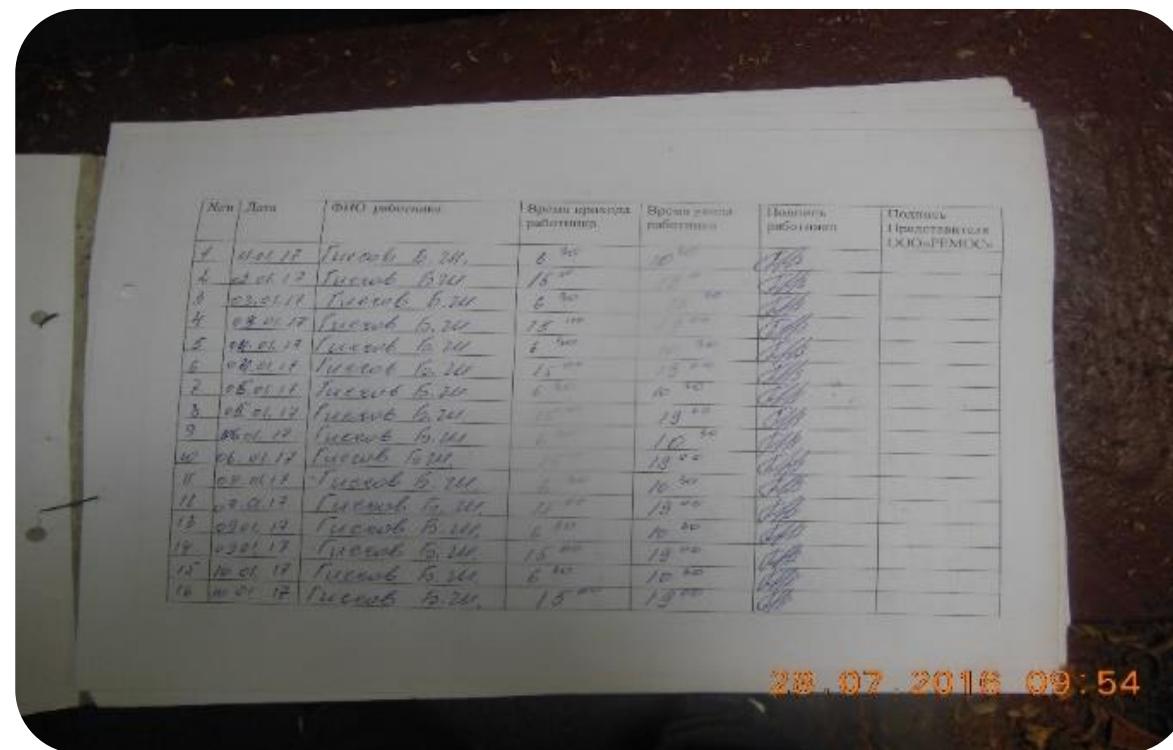 №п Дата ФИО работника Время прихода работника Время ухода работника Подпись работника Подпись Представителя ООО«РЕМОС»
1 01.01.17 Гисхов Б.Ш. 6 30 10 30
2 02.01.17 Гисхов Б.Ш. 15 00
3 03.01.17 Гисхов Б.Ш. 6 30
4 03.01.17 Гисхов Б.Ш. 15 00
5 04.01.17 Гисхов Б.Ш. 6 30
6 04.01.17 Гисхов Б.Ш. 15 00 19 00
7 05.01.17 Гисхов Б.Ш. 6 30 10 30
8 05.01.17 Гисхов Б.Ш. 15 00 19 00
9 06.01.17 Гисхов Б.Ш. 10 30
10 06.01.17 Гисхов Б.Ш. 19 00
11 Гисхов Б.Ш. 6 30 10 30
12 Гисхов Б.Ш. 19 00
13 09.01.17 Гисхов Б.Ш. 6 30 10 30
14 09.01.17 Гисхов Б.Ш. 15 00 19 00
15 10.01.17 Гисхов Б.Ш. 6 30 10 30
16 10.01.17 Гисхов Б.Ш. 15 00 19 00
28.07.2016 09:54